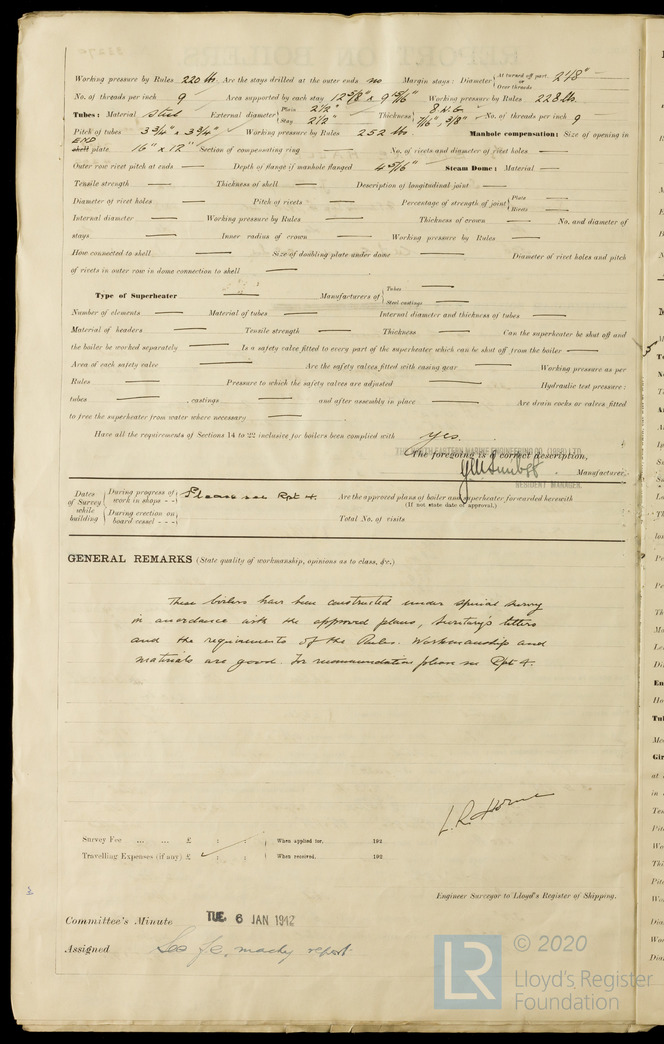 Working pressure by Rules 220 lbs. Are the stays drilled at the outer ends no Margin stays: Diameter { At turned off part, 2 1/8" or Over threads
No. of threads per inch 9 Area supported by each stay Working pressure by Rules 228 lbs.
Tubes: Material Steel External diameter { Plain 2 1/2" Stay 2 1/2" Thickness { 8 W.G. 7/16", 3/8" No. of threads per inch 9
Pitch of tubes 3 3/4" x 3 3/4" Working pressure by Rules 252 lbs. Manhole compensation: Size of opening in
END
shell plate 16" x 12" Section of compensating ring — No. of rivets and diameter of rivet holes —
Outer row rivet pitch at ends — Depth of flange if manhole flanged 4 5/16" Steam Dome: Material —
Tensile strength — Thickness of shell — Description of longitudinal joint —
Diameter of rivet holes — Pitch of rivets — Percentage of strength of joint { Plate — Rivets —
Internal diameter — Working pressure by Rules — Thickness of crown — No. and diameter of
stays — Inner radius of crown — Working pressure by Rules —
How connected to shell — Size of doubling plate under dome — Diameter of rivet holes and pitch
of rivets in outer row in dome connection to shell —
Type of Superheater — Manufacturers of { Tubes — Steel castings —
Number of elements — Material of tubes — Internal diameter and thickness of tubes —
Material of headers — Tensile strength — Thickness — Can the superheater be shut off and
the boiler be worked separately — Is a safety valve fitted to every part of the superheater which can be shut off from the boiler —
Area of each safety valve — Are the safety valves fitted with easing gear — Working pressure as per
Rules — Pressure to which the safety valves are adjusted — Hydraulic test pressure:
tubes — , castings — and after assembly in place — Are drain cocks or valves fitted
to free the superheater from water where necessary —
Have all the requirements of Sections 14 to 22 inclusive for boilers been complied with yes.
THE NORTH EASTERN MARINE ENGINEERING CO. (1938) LTD.
The foregoing is a correct description,
Manufacturer.
RESIDENT MANAGER.
Dates of Survey while building { During progress of work in shops - - } Please see Rpt 4. Are the approved plans of boiler and superheater forwarded herewith
(If not state date of approval.)
{ During erection on board vessel - - - } Total No. of visits
GENERAL REMARKS (State quality of workmanship, opinions as to class, &c.)
These boilers have been constructed under special survey
in accordance with the approved plans, Secretary's letters
and the requirements of the Rules. Workmanship and
materials are good. For recommendation please see Rpt 4.
L.R. Horne
Survey Fee ... ... £ : : When applied for, 192
Travelling Expenses (if any) £ : : When received, 192
Engineer Surveyor to Lloyd's Register of Shipping.
Committee's Minute TUE. 6 JAN 1942
Assigned See machy report
LR © 2020
Lloyd's Register
Foundation